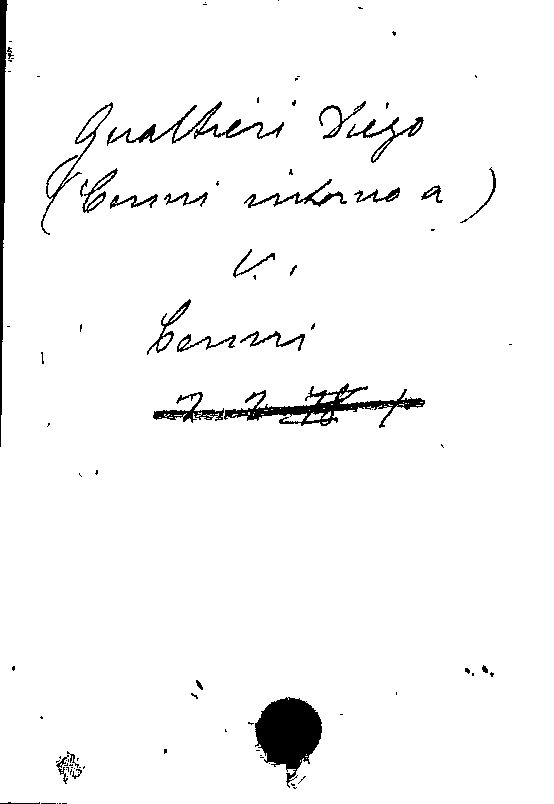 Gualtieri Diego
(Cenni intorno a)
V.
Cenni